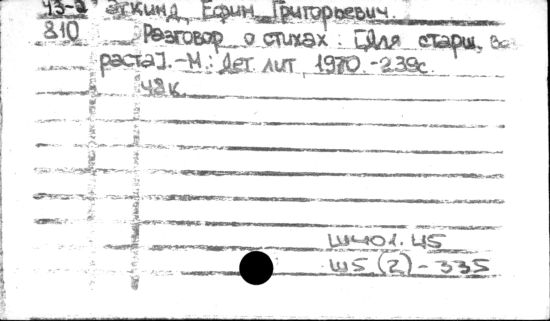 43-2 Эткинд, Ефим Григорьевич.
810 Разговор о стихах: [Для старш. во
раста]. -М.: Дет. лит, 1970. -239с.
42к.
Ш401.45
Ш5(2)-335